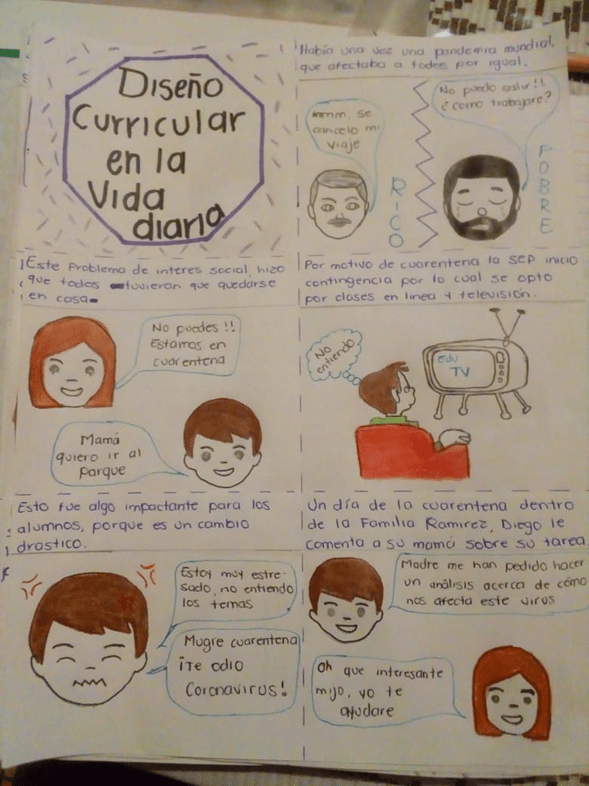 Diseño
Curricular
en la
Vida
diaria
Había una vez una pandemia mundial,
que afectaba a todos por igual.
mmm, se
cancelo mi
viaje
RICO
No puedo salir!!
¿como trabajare?
POBRE
Este problema de interes social, hizo
que todos tuvieran que quedarse
en casa.
No puedes!!
Estamos en
cuarentena
Mamá
quiero ir al
parque
Por motivo de cuarentena la SEP inicio
contingencia por lo cual se opto
por clases en linea y televisión.
No
entiendo
edu
TV
Esto fue algo impactante para los
alumnos, porque es un cambio
drastico.
Estoy muy estre
sado, no entiendo
los temas
Mugre cuarentena
¡Te odio
Coronavirus!
Un día de la cuarentena dentro
de la Familia Ramirez, Diego le
comenta a su mamá sobre su tarea
Madre me han pedido hacer
un análisis acerca de cómo
nos afecta este virus
Oh que interesante
mijo, yo te
ayudare